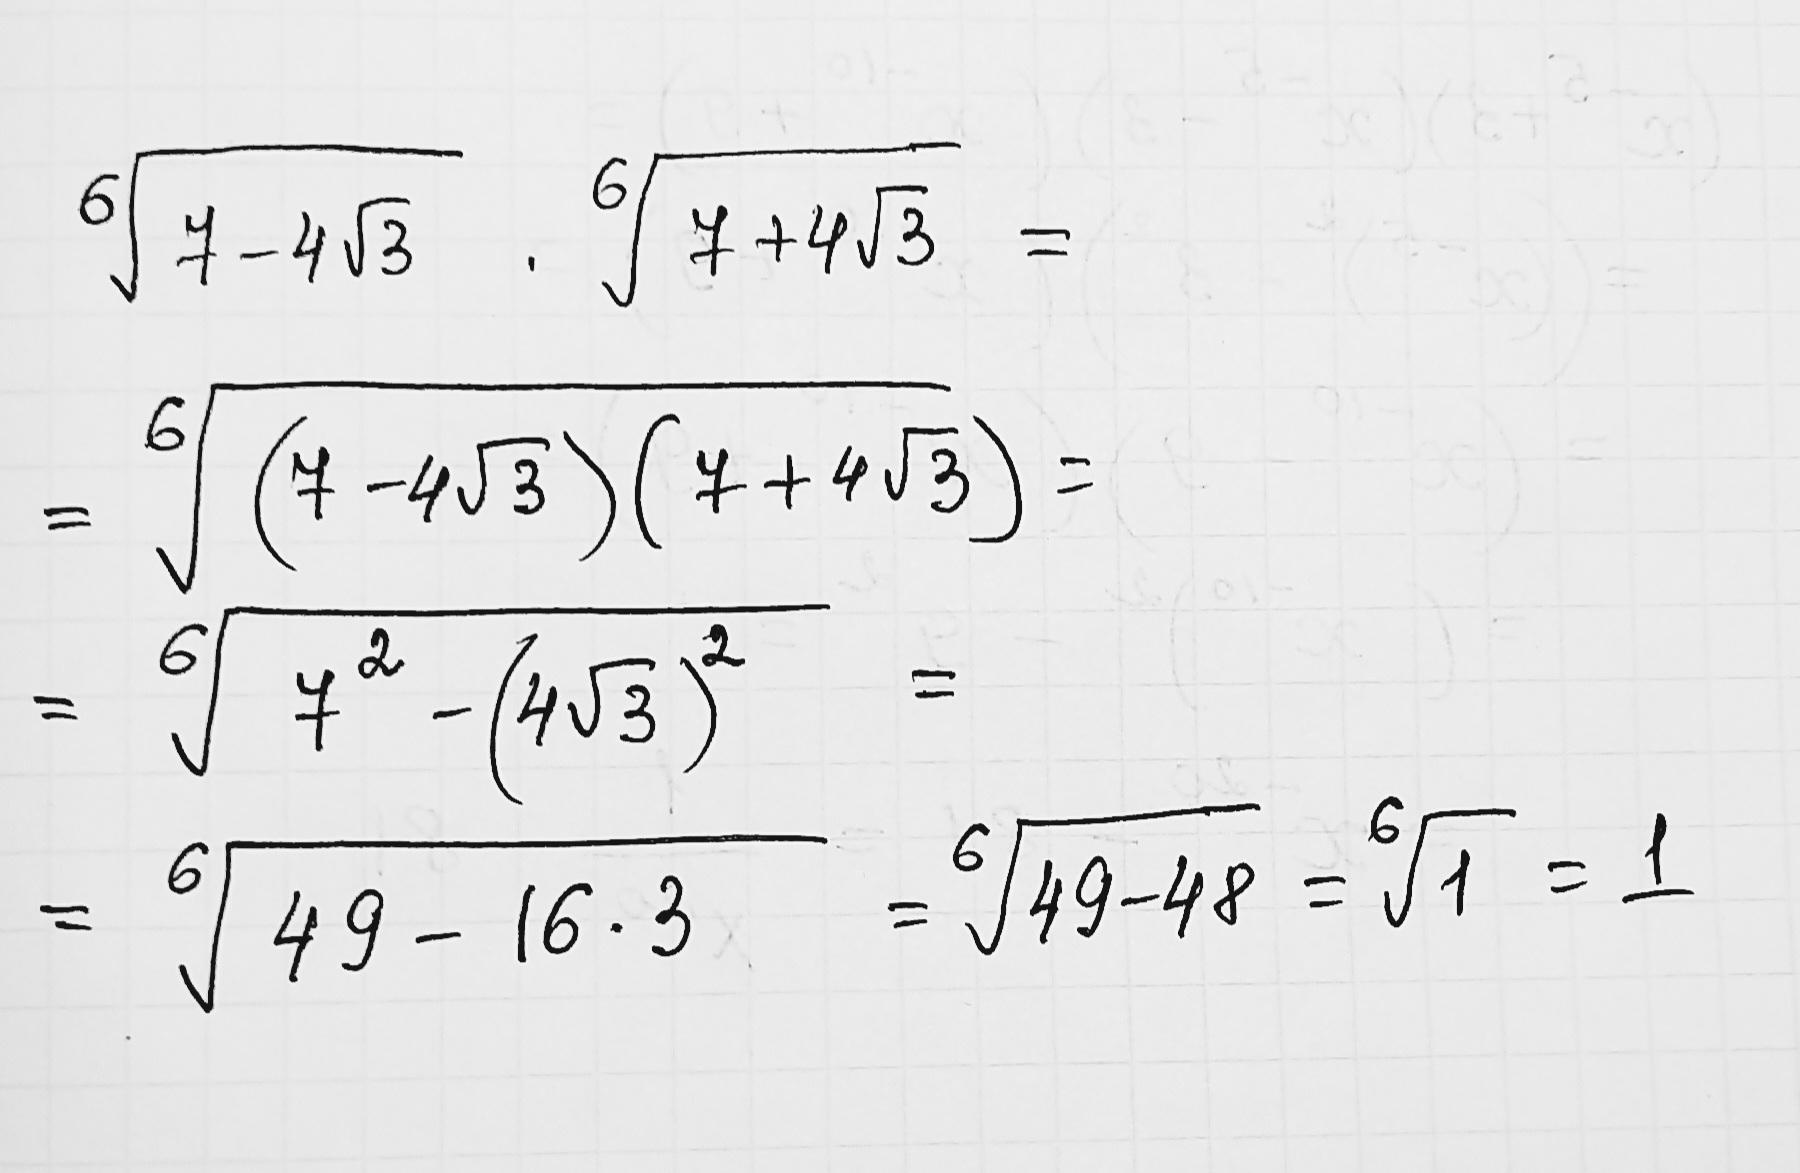 ⁶√(7-4√3) · ⁶√(7+4√3) =
= ⁶√((7-4√3)(7+4√3)) =
= ⁶√(7²-(4√3)²) =
= ⁶√(49-16·3) = ⁶√(49-48) = ⁶√1 = 1